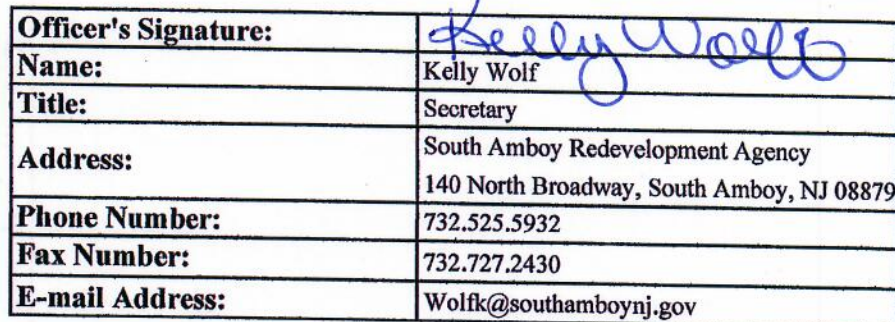 Officer's Signature: Kelly Wolf
Name: Kelly Wolf
Title: Secretary
Address: South Amboy Redevelopment Agency
140 North Broadway, South Amboy, NJ 08879
Phone Number: 732.525.5932
Fax Number: 732.727.2430
E-mail Address: Wolfk@southamboynj.gov